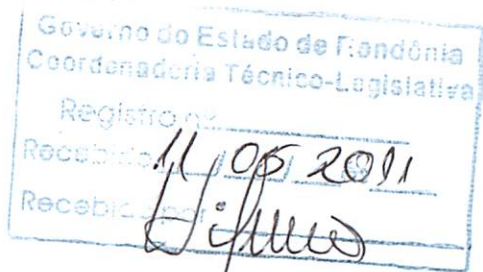 Governo do Estado de Rondônia
Coordenadoria Técnico-Legislativa
Registro nº
Recebido 11 / 05 / 2011
Recebido por